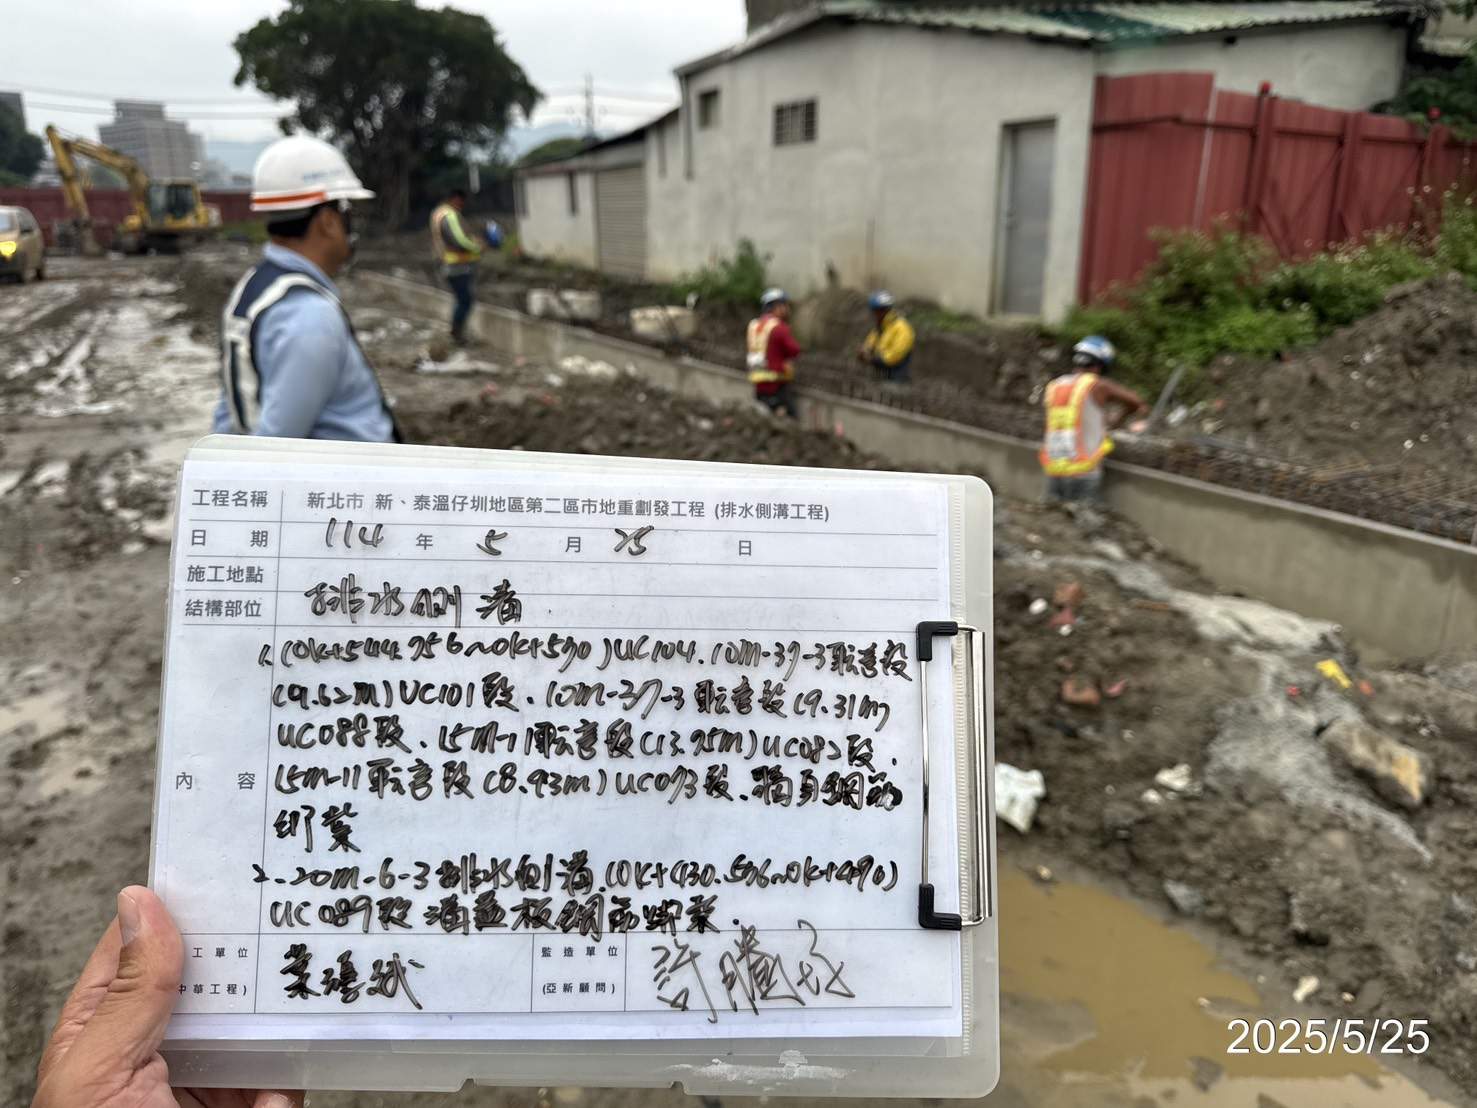 工程名稱 新北市 新、泰塭仔圳地區第二區市地重劃發工程 (排水側溝工程)
日 期 114 年 5 月 25 日
施工地點
結構部位 排水側溝
1. (0k+544.756~0k+590)UC104、10M-37-3聯書段
(9.62M)UC101段、10M-37-3聯書段(9.31m)
UC088段、15M-11聯書段(13.75M)UC082段、
內 容 15M-11聯書段(8.93m)UC073段、牆身鋼筋
綁紮
2.-20M-6-3排水側溝(0k+430.536~0k+490)
UC089段溝蓋板鋼筋綁紮.
工單位 監造單位
中華工程) (亞新顧問)
2025/5/25